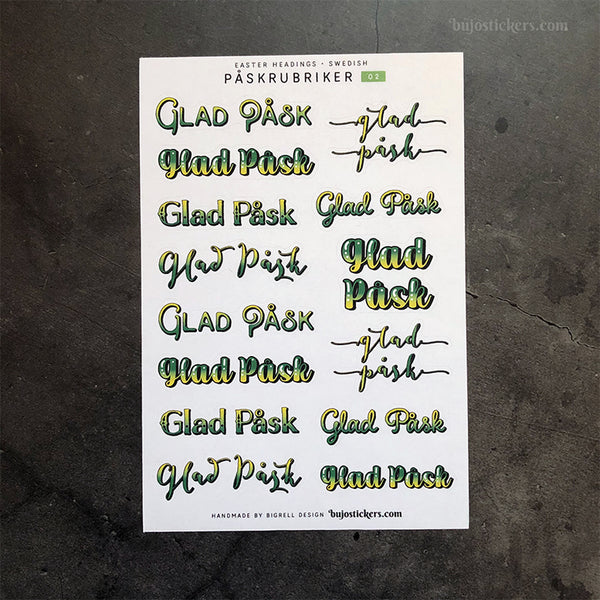 bujostickers.com
EASTER HEADINGS • SWEDISH
PÅSKRUBRIKER 02
GLAD PÅSK
Glad Påsk
Glad Påsk
Glad Påsk
GLAD PÅSK
Glad Påsk
Glad Påsk
Glad Påsk
glad
påsk
Glad Påsk
Glad
Påsk
glad
påsk
Glad Påsk
Glad Påsk
HANDMADE BY BIGRELL DESIGN bujostickers.com